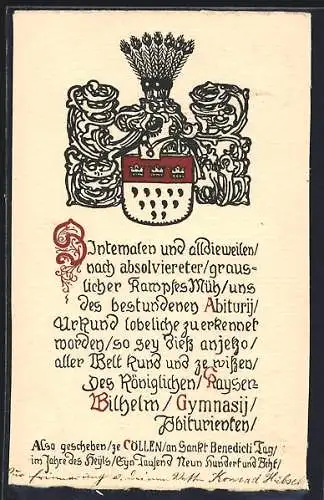 Sintemalen und alldieweilen/
nach absolviereter/graus-
licher Kampfes Müh/uns
des bestundenen Abiturij/
Urkund lobeliche zuerkennet
worden/so sey dieß anjetzo/
aller Welt kund und ze wißen/
Des Königlichen/Kayser
Wilhelm/Gymnasij/
Abiturienten/
Also geschehen/ze CÖLLEN/an Sankt Benedicti Tag/
im Jahre des Heyls/Eyn Tausend Neun Hundert und Acht/
Zur Erinnerung a. Konrad